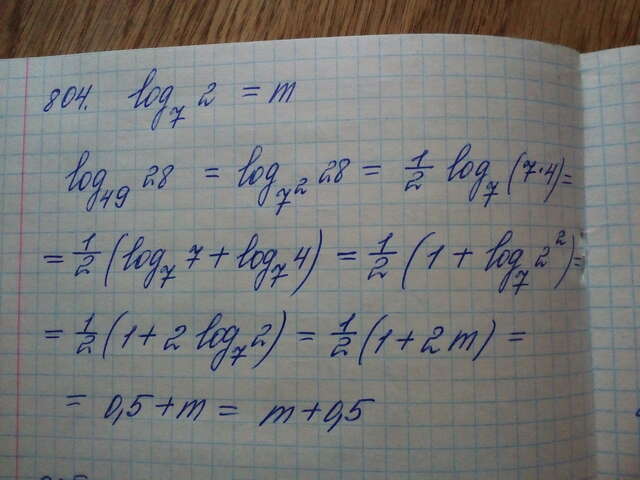 804. log₇ 2 = m
log₄₉ 28 = log₇² 28 = 1/2 log₇ (7·4) =
= 1/2 (log₇ 7 + log₇ 4) = 1/2 (1 + log₇ 2²) =
= 1/2 (1 + 2 log₇ 2) = 1/2 (1 + 2 m) =
= 0,5 + m = m + 0,5